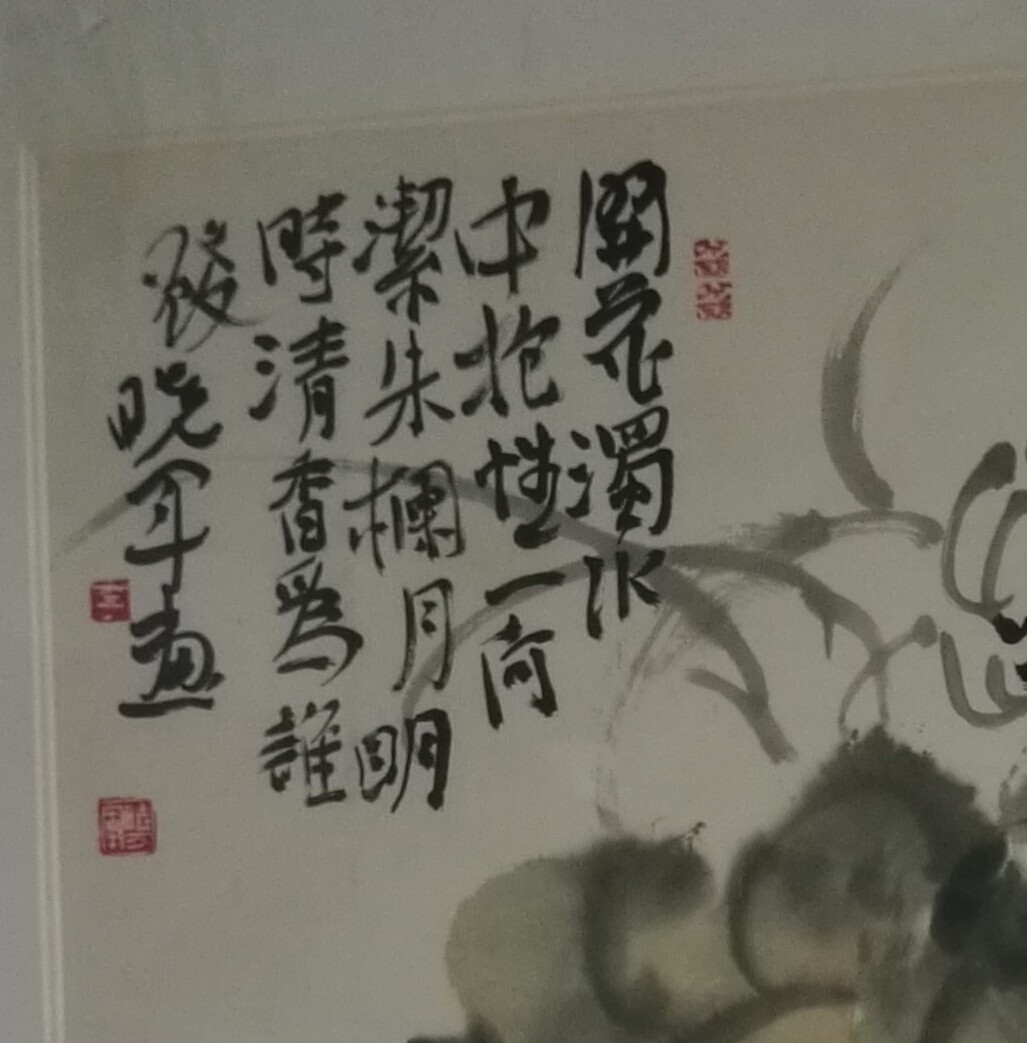 開花濁水
中抱性一何
潔朱欄月明
時清香爲誰
發曉軍畫